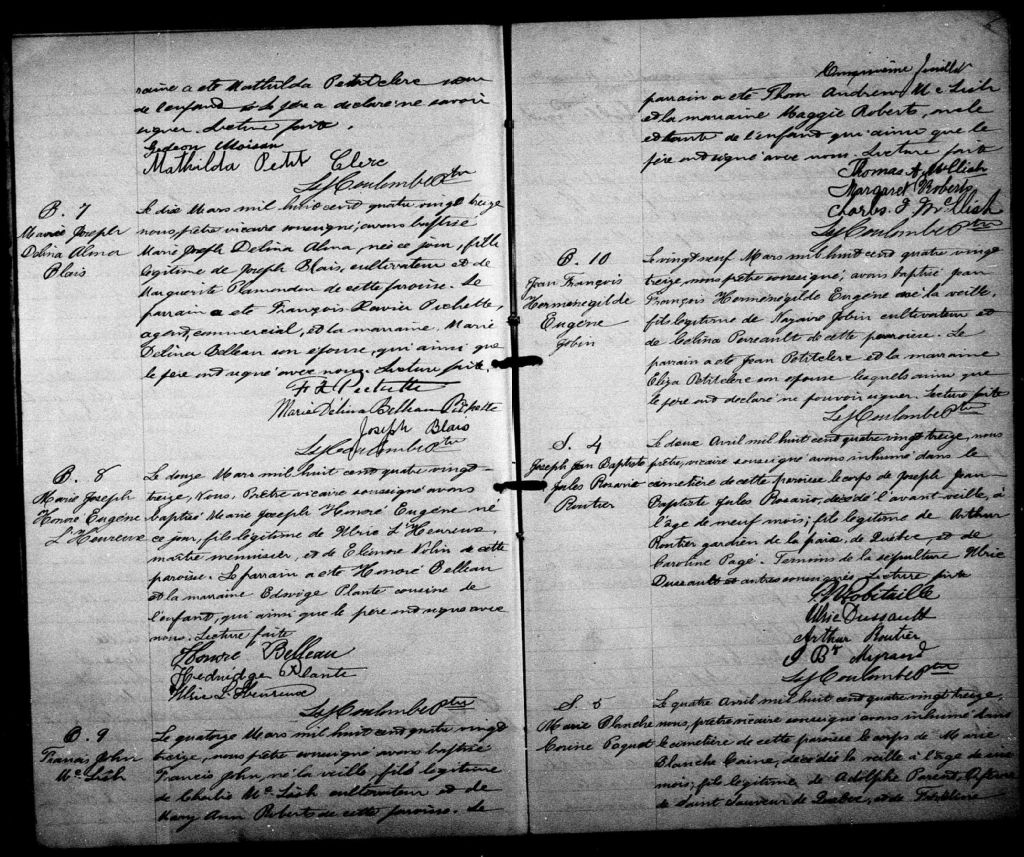 raine a été Mathilda Petitclerc sœur
de l'enfant et le père a déclaré ne savoir
signer. Lecture faite.
Gedeon Moisan
Mathilda Petit Clerc
Lef Coulombe Ptre
B. 7
Marie Joseph
Delina Alma
Blais
Le dix Mars mil huit cent quatre vingt treize
nous, prêtre vicaire soussigné, avons baptisé
Marie Joseph Delina Alma, née ce jour, fille
légitime de Joseph Blais, cultivateur et de
Marguerite Plamondon de cette paroisse. Le
parrain a été François Xavier Pichette,
agent commercial, et la marraine, Marie
Delina Belleau son épouse, qui ainsi que
le père ont signé avec nous. Lecture faite.
F X Pichette
Marie Delina Belleau Pichette
Joseph Blais
Lef Coulombe Ptre
B. 8
Marie Joseph
Honoré Eugène
L'Heureux
Le douze Mars mil huit cent quatre vingt-
treize, Nous, Prêtre vicaire soussigné avons
baptisé Marie Joseph Honoré Eugène né
ce jour, fils légitime de Ulric L'Heureux,
maître menuisier, et de Eléonore Volin de cette
paroisse. Le parrain a été Honoré Belleau
et la marraine Edwige Plante cousine de
l'enfant, qui ainsi que le père ont signé avec
nous. Lecture faite
Honoré Belleau
Hedwidge Plante
Ulric L'Heureux
Lef Coulombe Ptre
B. 9
Francis John
Mc Lish
Le quatorze Mars mil huit cent quatre vingt
treize, nous prêtre soussigné avons baptisé
Francis John, né la veille, fils légitime
de Charlie Mc Lish cultivateur et de
Mary Ann Roberts de cette paroisse. Le
Cinquième feuillet
parrain a été Thom Andrew Mc Lish
et la marraine Maggie Roberts, oncle
et tante de l'enfant qui ainsi que le
père ont signé avec nous. Lecture faite
Thomas A McClish
Margaret Roberts
Charles J McClish
Lef Coulombe Ptre
B. 10
Jean François
Hermenegilde
Eugène
Jobin
Le vingt neuf Mars mil huit cent quatre vingt
treize, nous prêtre soussigné, avons baptisé Jean
François Herménégilde Eugène né la veille,
fils légitime de Nazaire Jobin cultivateur et
de Celina Perreault de cette paroisse. Le
parrain a été Jean Petitclerc et la marraine
Eliza Petitclerc son épouse lesquels ainsi que
le père ont déclaré ne pouvoir signer. Lecture faite
Lef Coulombe Ptre
S. 4
Joseph Jean Baptiste
Jules Rosario
Routier
Le deux Avril mil huit cent quatre vingt treize, nous
prêtre, vicaire soussigné avons inhumé dans le
cimetière de cette paroisse le corps de Joseph Jean
Baptiste Jules Rosario, décédé l'avant veille, à
l'âge de neuf mois; fils légitime de Arthur
Routier gardien de la paix, de Québec, et de
Caroline Pagé. Témoins de la sépulture Ulric
Dussault et autres soussignés. Lecture faite
Robitaille
Ulric Dussault
Arthur Routier
J Bte Myrand
Lef Coulombe Ptre
S. 5
Marie Blanche
Corine Paquet
Le quatre Avril mil huit cent quatre vingt treize,
nous, prêtre vicaire soussigné avons inhumé dans
le cimetière de cette paroisse le corps de Marie
Blanche Corine, décédée la veille à l'âge de
mois; fille légitime de Adolphe Parent,
de Saint Sauveur de Québec, et de